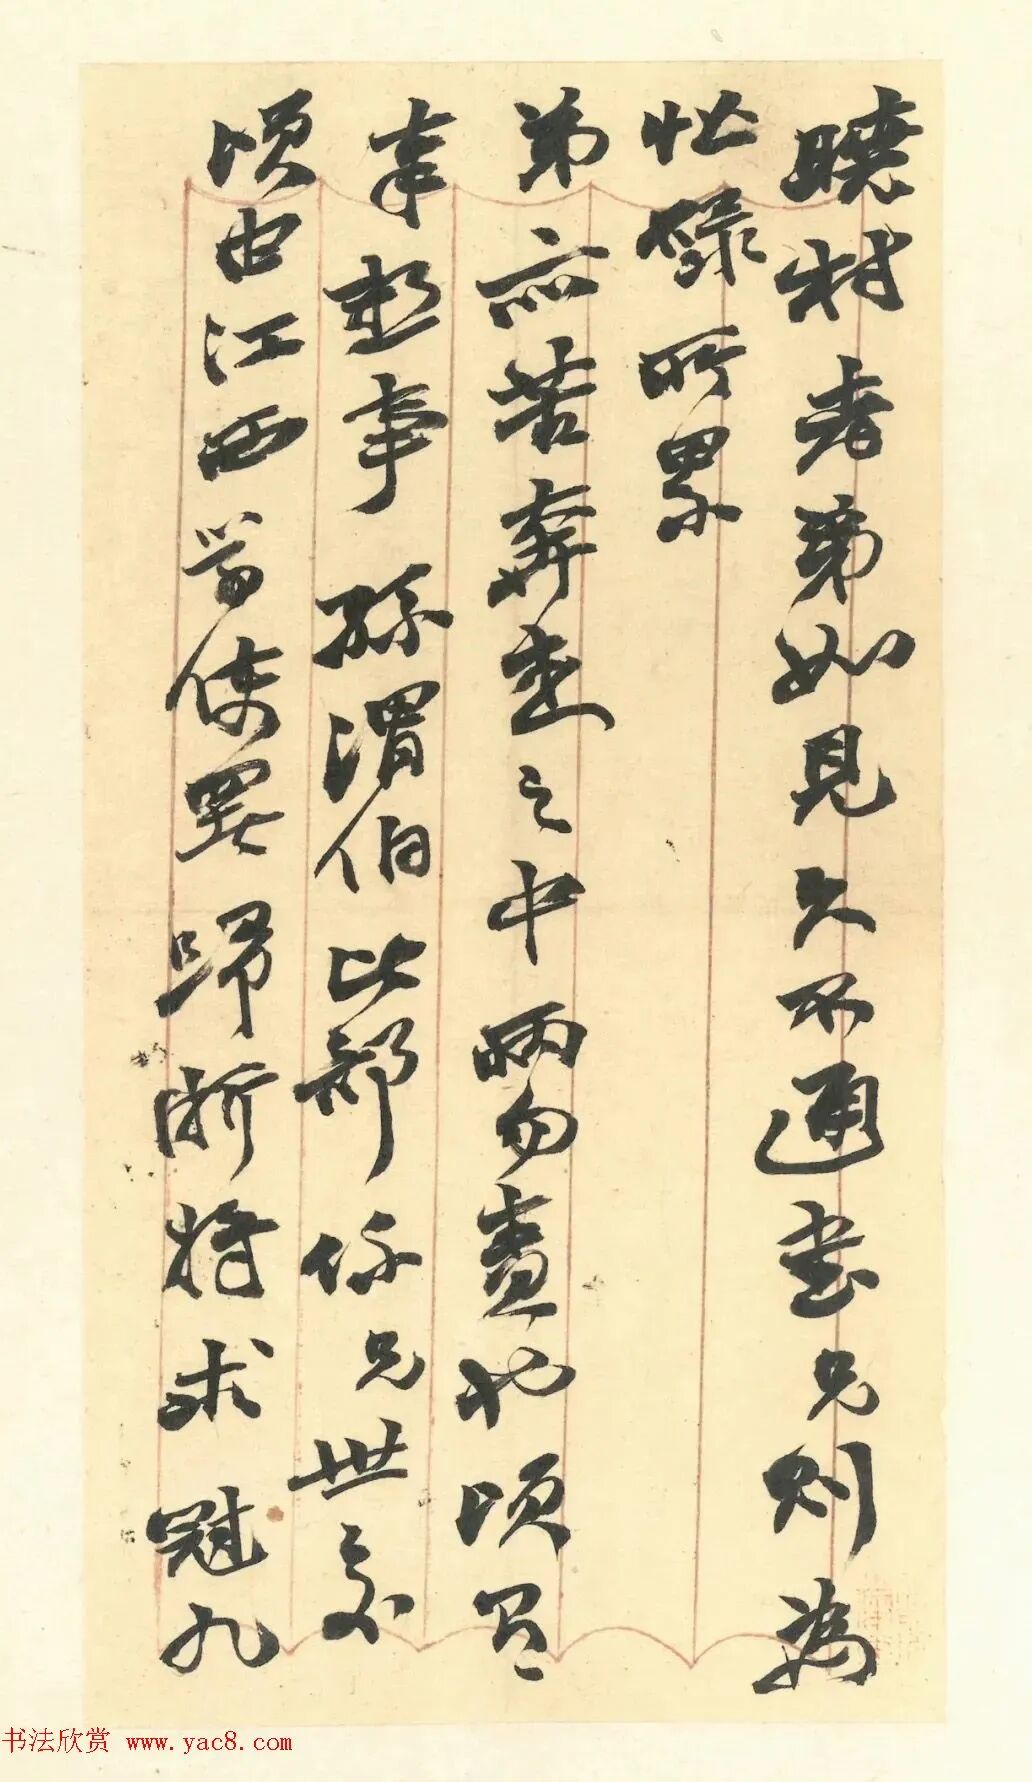 曉村老弟如見久不通書兄則為
忙碌所累
弟亦苦奔走之中兩勿盡也頃
奉懇事孫渭伯比部係兄世交
頃由江西學使罷歸浙將求冠九
书法欣赏 www.yac8.com